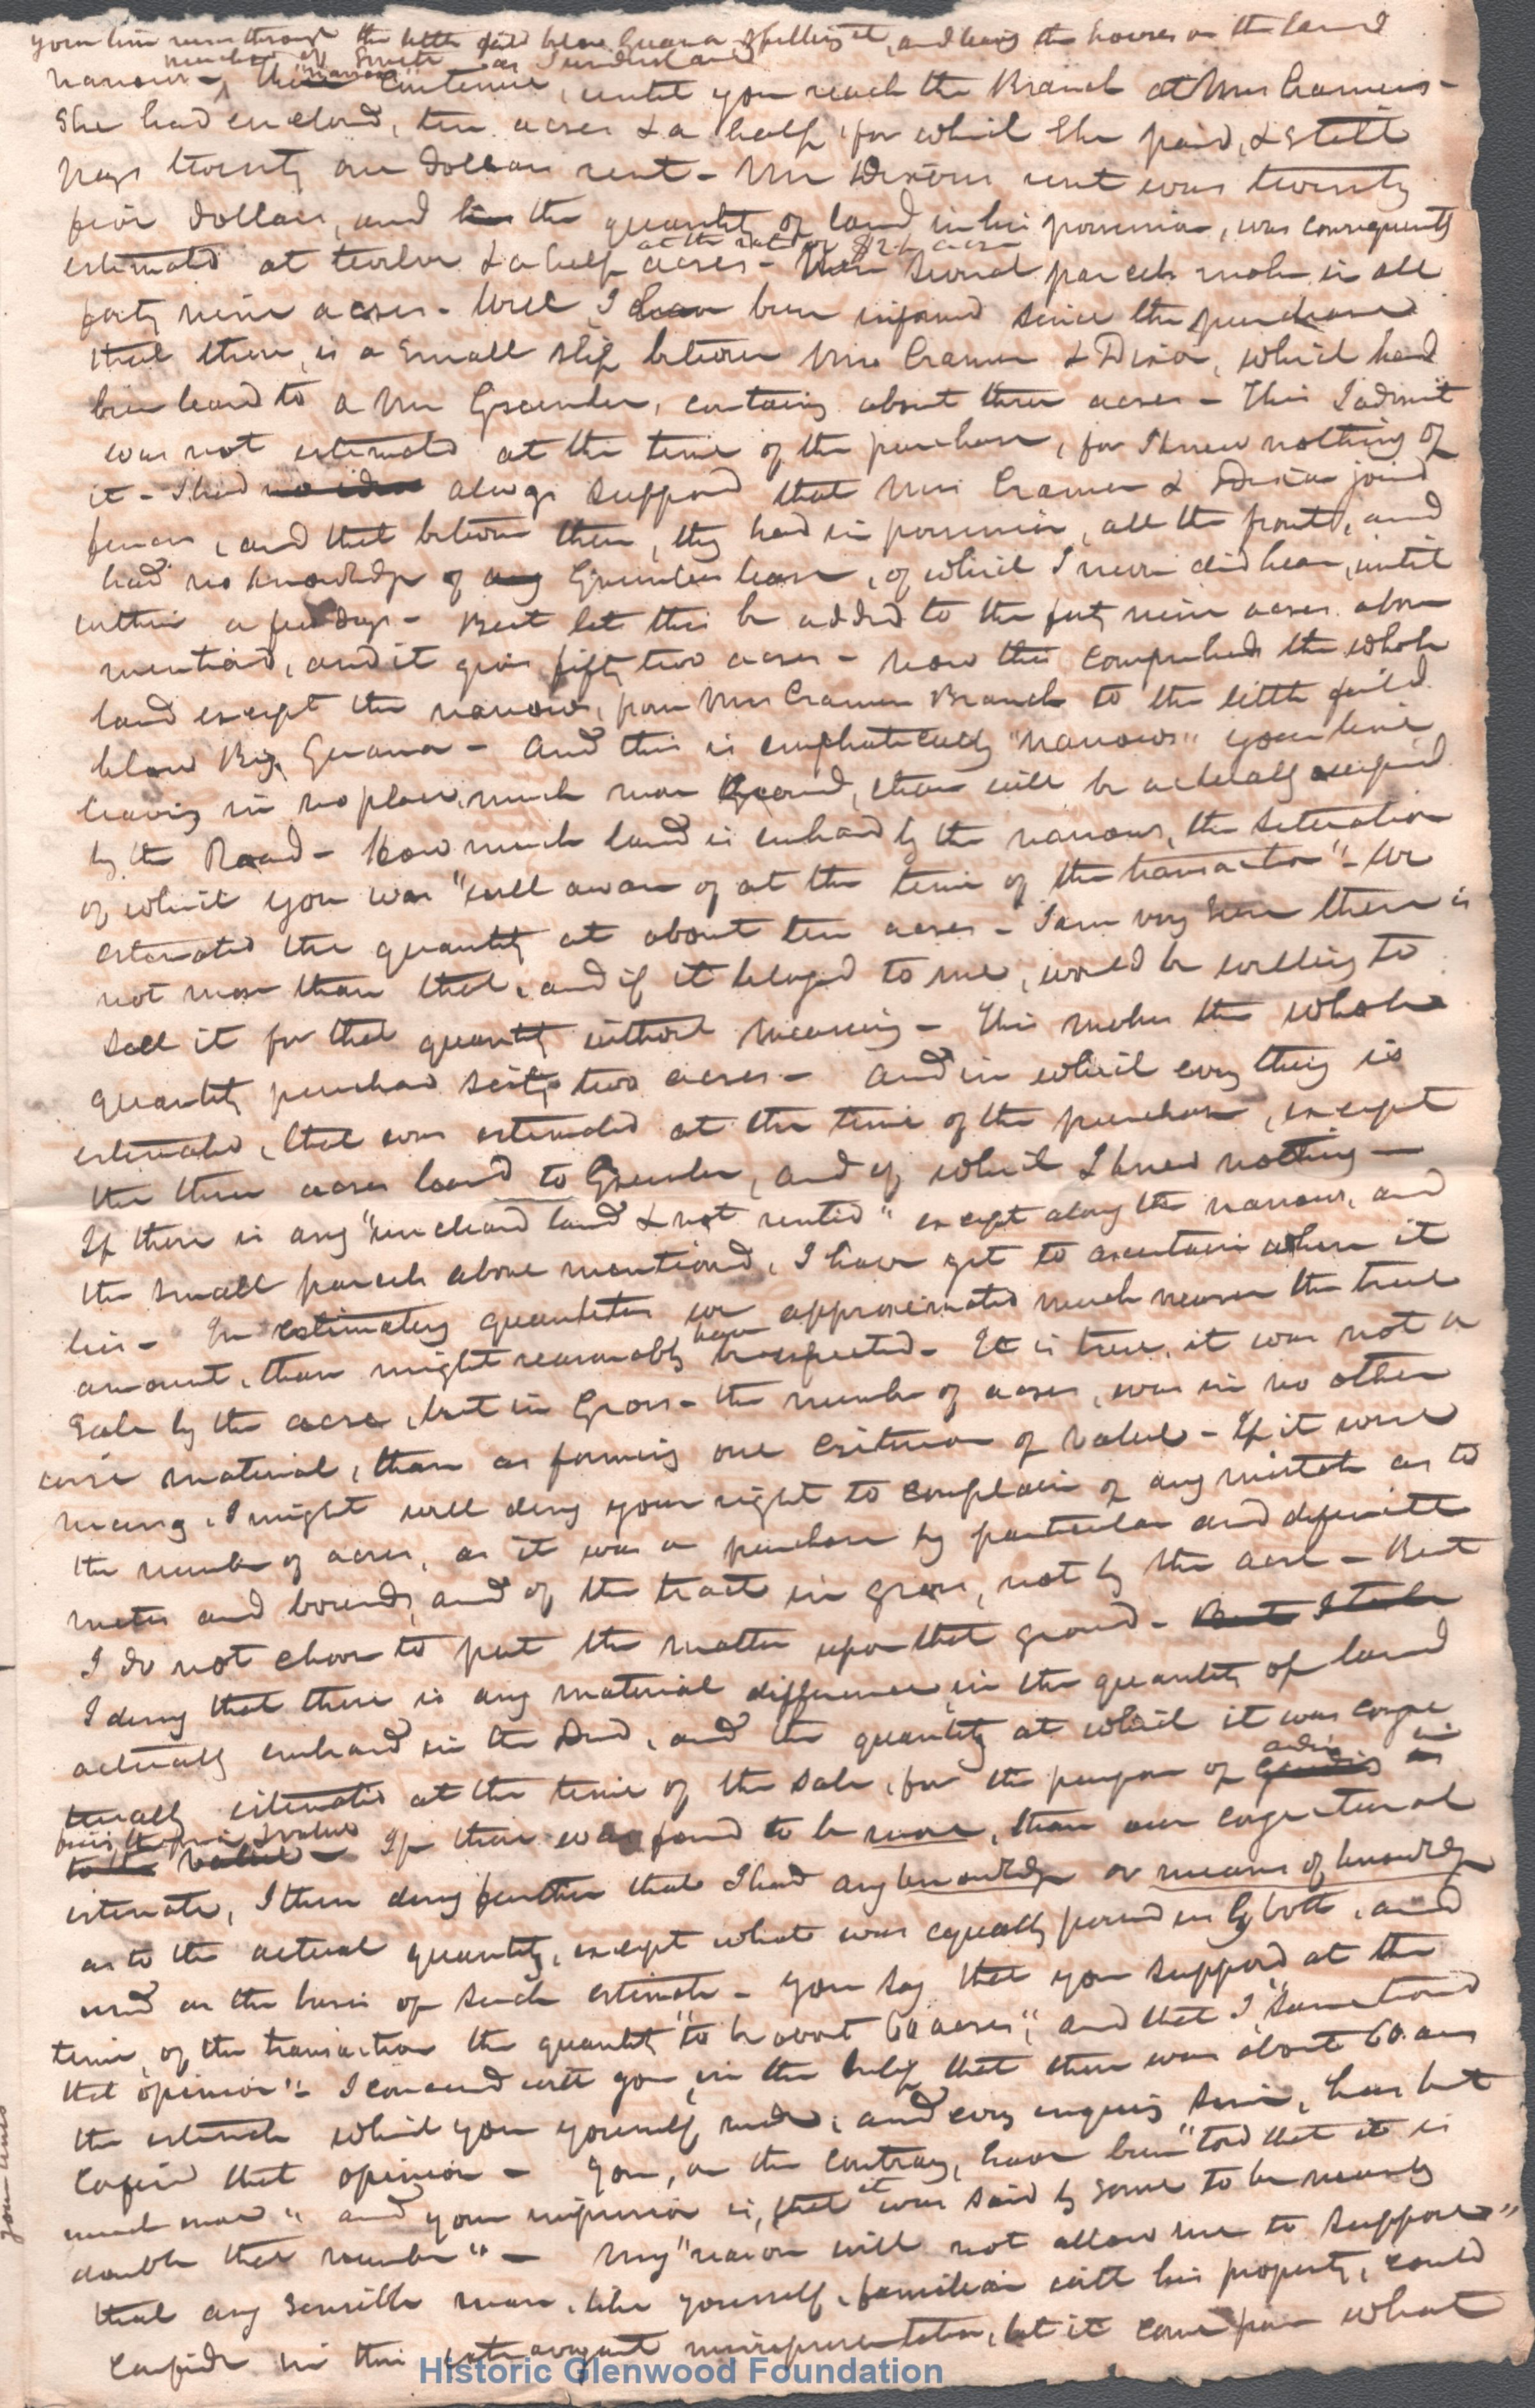 your line runs through the little field below Guana, Spelling it, and being the houses on the land
number of Smith as I understand
narrows - these narrows continue, until you reach the Branch at Mrs Cramers -
She had enclosed, ten acres & a half, for which she paid, & still
pays twenty one dollars rent - Mr Dixons rent was twenty
five dollars, and the quantity of land in his possession, was consequently
at the rate of $2 per acre
estimated at twelve & a half acres - These several parcels make in all
forty nine acres - Well, I have been informed since the purchase
that there, is a small slip between Mrs Cramer & Dixon, which had
been leased to a Mr Greenlee, containing about three acres - This I admit
was not estimated at the time of the purchase, for I knew nothing of
it - I had no idea always supposed that Mrs Cramer & Dixon joined
fences, and that between them, they had in possession, all the front, and
had no knowledge of any Greenlees lease, of which I never did hear, until
within a few days - But let this be added to the forty nine acres above
mentioned, and it gives fifty two acres - now this comprehends the whole
land except the narrows, from Mrs Cramers Branch to the little field
below Big Guana - And this is emphatically "narrows" your line
leaving in no place, much more ground, than will be actually occupied
by the Road - How much land is embraced by the narrows, the situation
of which you was "well aware of at the time of the transaction" - We
estimated the quantity at about ten acres - I am very sure there is
not more than that, and if it belonged to me, would be willing to
sell it for that quantity without measuring - This makes the whole
quantity purchased sixty two acres - And in which every thing is
estimated, that was estimated at the time of the purchase, except
the three acres leased to Greenlee, and of which I knew nothing -
If there is any "uncleared land & not rented" except along the narrows, and
the small parcels above mentioned, I have yet to ascertain where it
lies - In estimating quantities we approximated much nearer the true
amount, than might reasonably have been expected - It is true, it was not a
sale by the acre, but in Gross - the number of acres, was in no other
wise material, than as forming one criterion of value - If it were
necessary, I might well deny your right to complain of any mistake as to
the number of acres, as it was a purchase by particular and definite
metes and bounds, and of the tract in gross, not by the acre - But
I do not choose to put the matter upon that ground - But I take
I deny that there is any material difference in the quantity of land
actually embraced in the Deed, and the quantity at which it was conjec
turally estimated at the time of the sale, for the purpose of aiding in
fixing the price & value
to the value - If there was found to be more, than our conjectural
estimate, I then deny further that I had any knowledge or means of knowledge
as to the actual quantity, except what was equally possessed by both, and
used as the basis of such estimate - You say that you supposed at the
time, of the transaction the quantity "to be about 60 acres", and that I "sanctioned
that opinion" - I concurred with you, in the belief that there was about 60 acres
the estimate which you yourself made, and every enquiry since, has but
confirmed that opinion - You, on the contrary, have been "told that it is
much more" and your impression is, that it was said by some to be nearly
double that number" - My "reason will not allow me to suppose"
that any sensible man, like yourself, familiar with his property, could
confide in this extravagant misrepresentation, let it come from what
Historic Glenwood Foundation